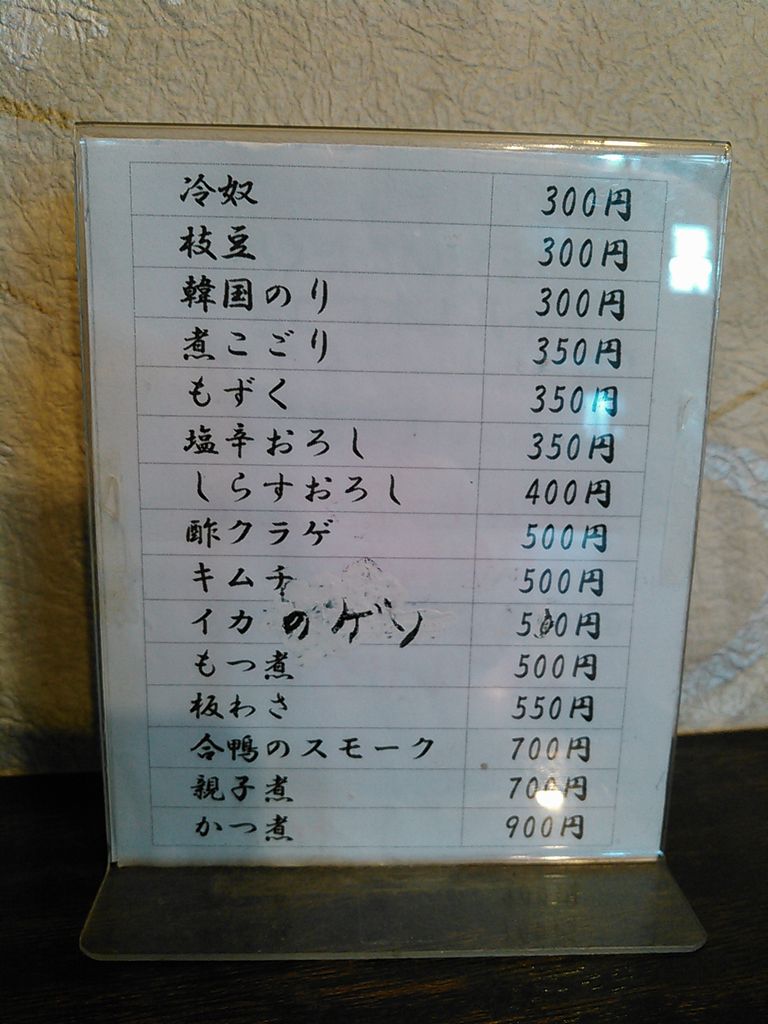 冷奴 300円
枝豆 300円
韓国のり 300円
煮こごり 350円
もずく 350円
塩辛おろし 350円
しらすおろし 400円
酢クラゲ 500円
キムチ 500円
イカのゲソ 500円
もつ煮 500円
板わさ 550円
合鴨のスモーク 700円
親子煮 700円
かつ煮 900円